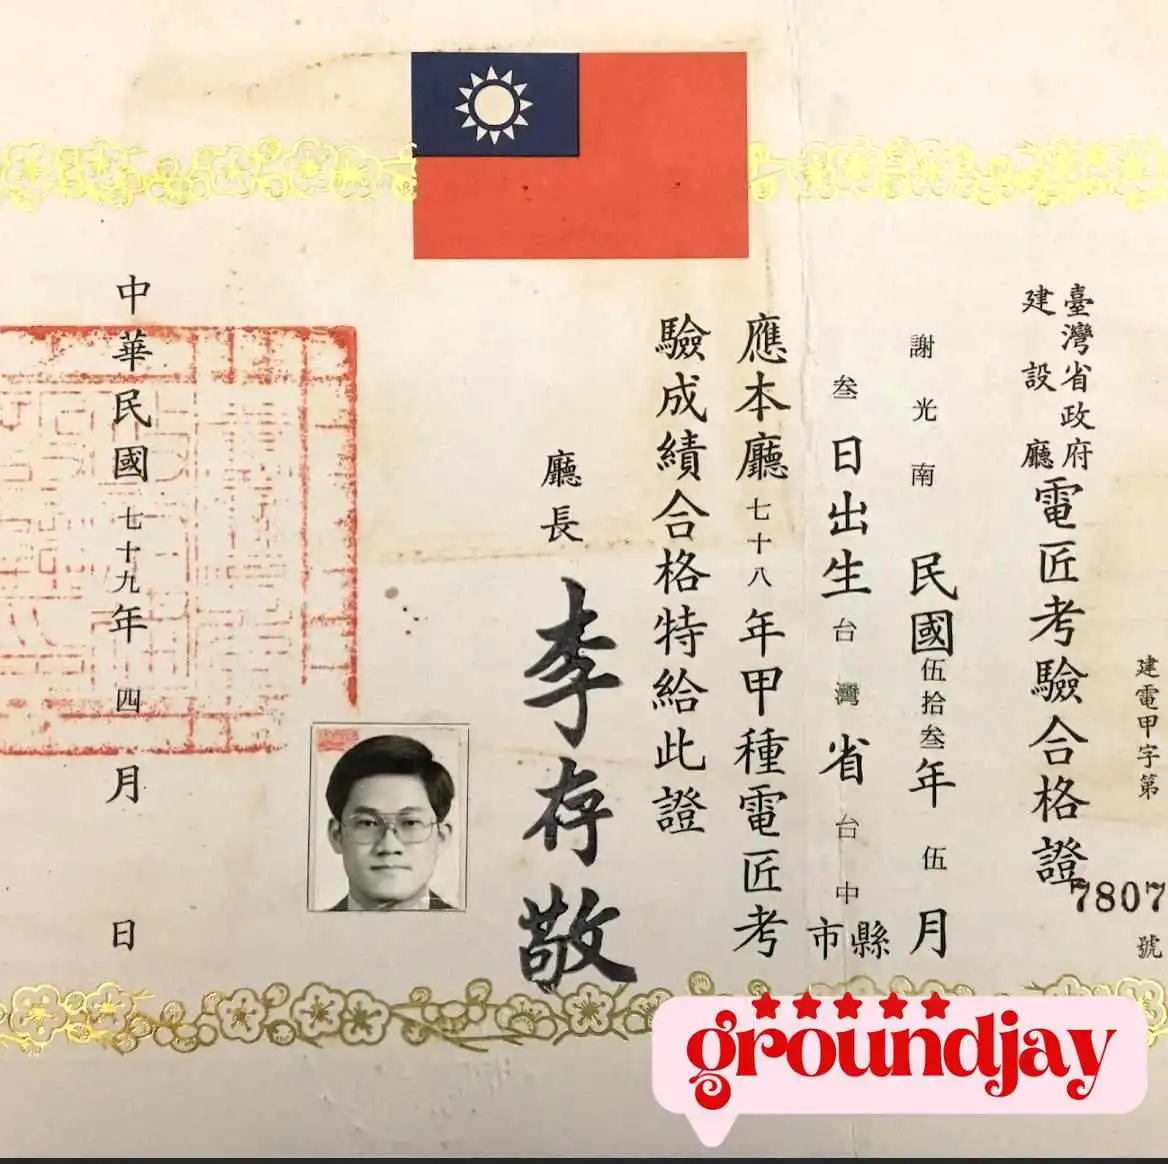 建電甲字第7807號
臺灣省政府
建設廳
電匠考驗合格證
謝光南 民國伍拾叁年伍月
叁日出生台灣省台中縣市
應本廳七十八年甲種電匠考
驗成績合格特給此證
廳長 李存敬
中華民國七十九年四月 日
groundjay